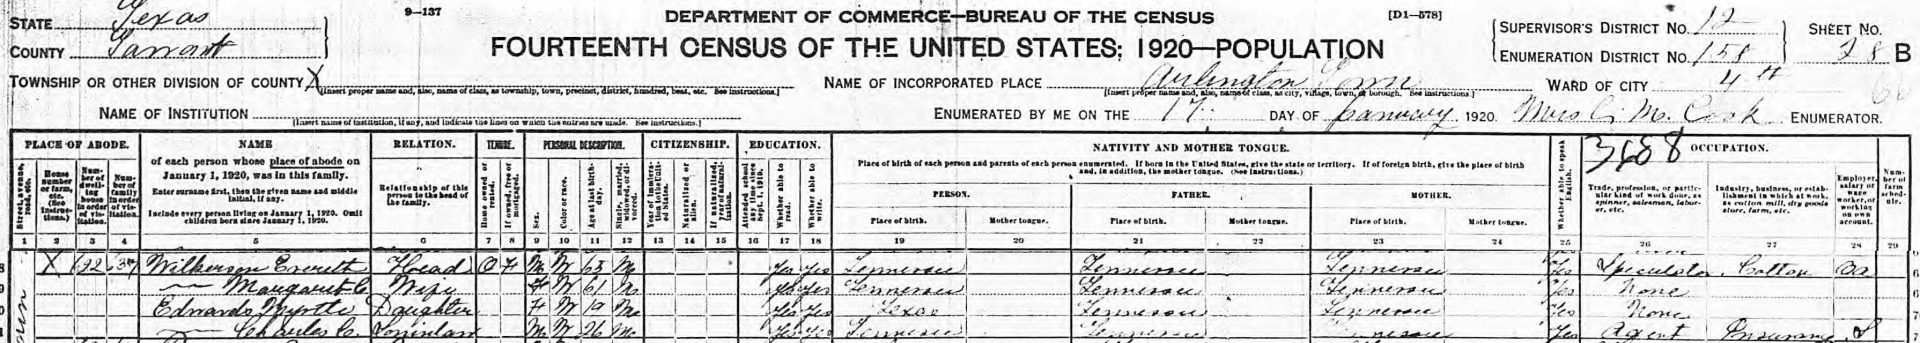 STATE Texas
COUNTY Tarrant
9-137
DEPARTMENT OF COMMERCE—BUREAU OF THE CENSUS
[D1-578]
FOURTEENTH CENSUS OF THE UNITED STATES: 1920—POPULATION
SUPERVISOR'S DISTRICT NO. 12
ENUMERATION DISTRICT NO. 158
SHEET NO.
28 B
TOWNSHIP OR OTHER DIVISION OF COUNTY X
[Insert proper name and, also, name of class, as township, town, precinct, district, hundred, beat, etc. See instructions.]
NAME OF INCORPORATED PLACE Arlington Town
[Insert proper name and, also, name of class, as city, village, town, or borough. See instructions.]
WARD OF CITY 4th
NAME OF INSTITUTION
[Insert name of institution, if any, and indicate the lines on which the entries are made. See instructions.]
ENUMERATED BY ME ON THE 17 DAY OF January, 1920. Mrs C. M. Cook ENUMERATOR.
PLACE OF ABODE. NAME RELATION. TENURE. PERSONAL DESCRIPTION. CITIZENSHIP. EDUCATION. NATIVITY AND MOTHER TONGUE. 3688 OCCUPATION.
Street, avenue, road, etc.
House number or farm, etc. (See instructions.)
Number of dwelling house in order of visitation.
Number of family in order of visitation.
of each person whose place of abode on January 1, 1920, was in this family.
Enter surname first, then the given name and middle initial, if any.
Include every person living on January 1, 1920. Omit children born since January 1, 1920.
Relationship of this person to the head of the family.
Home owned or rented.
If owned, free or mortgaged.
Sex.
Color or race.
Age at last birthday.
Single, married, widowed, or divorced.
Year of immigration to the United States.
Naturalized or alien.
If naturalized, year of naturalization.
Attended school any time since Sept. 1, 1919.
Whether able to read.
Whether able to write.
Place of birth of each person and parents of each person enumerated. If born in the United States, give the state or territory. If of foreign birth, give the place of birth and, in addition, the mother tongue. (See instructions.)
PERSON. FATHER. MOTHER.
Place of birth. Mother tongue. Place of birth. Mother tongue. Place of birth. Mother tongue.
Whether able to speak English.
Trade, profession, or particular kind of work done, as spinner, salesman, laborer, etc.
Industry, business, or establishment in which at work, as cotton mill, dry goods store, farm, etc.
Employer, salary or wage worker, or working on own account.
Number of farm schedule.
1 2 3 4 5 6 7 8 9 10 11 12 13 14 15 16 17 18 19 20 21 22 23 24 25 26 27 28 29
X 622 637 Wilkerson Everett Head O F M W 65 M Yes Yes Tennessee Tennessee Tennessee Yes Speculator Cotton OA
— Margaret C Wife F W 61 M Yes Yes Tennessee Tennessee Tennessee Yes None
Edwards Myrtle Daughter F W 19 M Yes Yes Texas Tennessee Tennessee Yes None
— Charles C. Soninlaw M W 26 M Yes Yes Tennessee Tennessee Tennessee Yes Agent Insurance